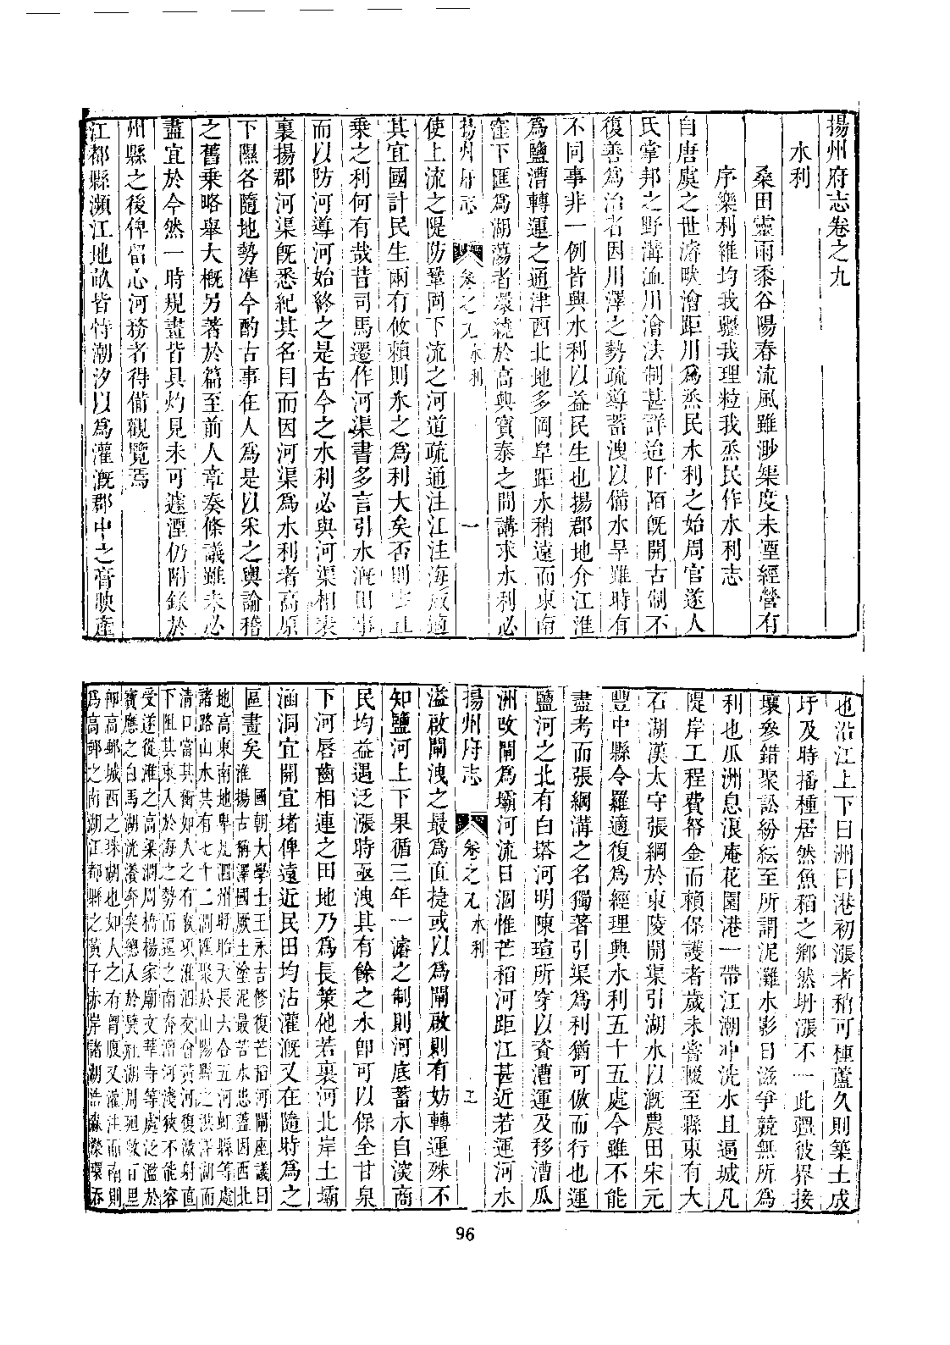 揚州府志卷之九
水利
桑田靈雨黍谷陽春流風雖渺榘度未湮經營有
序樂利維均我疆我理粒我烝民作水利志
自唐虞之世濬畎澮距川為烝民水利之始周官遂人
氏掌邦之野溝洫川澮法制甚詳迨阡陌旣開古制不
復善為治者因川澤之勢疏導蓄洩以備水旱雖時有
不同事非一例皆興水利以益民生也揚郡地介江淮
為鹽漕轉運之通津西北地多岡阜距水稍遠而東南
窪下匯為湖蕩者環繞於高興寶泰之間講求水利必
揚州府志 卷之九 水利 一
使上流之隄防鞏固下流之河道疏通注江注海咸適
其宜國計民生兩有攸賴則水之為利大矣否則
乘之利何有哉昔司馬遷作河渠書多言引水漑田事
而以防河導河始終之是古今之水利必與河渠相表
裏揚郡河渠旣悉紀其名目而因河渠為水利者高原
下隰各隨地勢準今酌古事在人為是以采之輿論稽
之舊乘略舉大概另著於篇至前人章奏條議雖未必
盡宜於今然一時規畫皆具灼見未可遽湮仍附錄於
州縣之後俾留心河務者得備觀覽焉
江都縣瀕江地畝皆恃潮汐以為灌漑郡中之膏腴產
也沿江上下曰洲曰港初漲者稍可種蘆久則築土成
圩及時播種居然魚稻之鄉然坍漲不一此疆彼界接
壤參錯聚訟紛紜至所謂泥灘水影日滋爭競無所為
利也瓜洲息浪庵花園港一帶江潮冲洗水且逼城凡
隄岸工程費帑金而賴保護者歲未嘗輟至縣東有大
石湖漢太守張綱於東陵開渠引湖水以漑農田宋元
豐中縣令羅適復為經理興水利五十五處今雖不能
盡考而張綱溝之名獨著引渠為利猶可倣而行也運
鹽河之北有白塔河明陳瑄所穿以資漕運及移漕瓜
洲改閘為壩河流日涸惟芒稻河距江甚近若運河水
揚州府志 卷之九 水利
溢啟閘洩之最為直捷或以為閘啟則有妨轉運殊不
知鹽河上下果循三年一濬之制則河底蓄水自深商
民均益遇泛漲時亟洩其有餘之水卽可以保全甘泉
下河唇齒相連之田地乃為長策他若裏河北岸土壩
涵洞宜開宜堵俾遠近民田均沾灌漑又在隨時為之
區畫矣 國朝大學士王永吉修復芒稻河閘座議曰
淮揚古稱澤國厥土塗泥最苦水患蓋因西北
地高東南地卑九泗州盱眙天長六合五河虹縣等處
諸路山水共有七十二澗匯聚於山陽縣之洪澤湖而
清口當其衝如人之有喉項淮泗交會黃河復激射直
下阻其東入於海之勢而逼之南奔漕河淺狹不能容
受遂從淮之高澗周橋楊家廟文華寺等處泛濫於
寶應之白馬湖洸瀁奔突總入於甓社湖周廻數百里
卽高郵城西之珠湖也如人之有胃腹又灌注而南則
為高郵之南湖江都縣之黃子赤岸諸湖
96